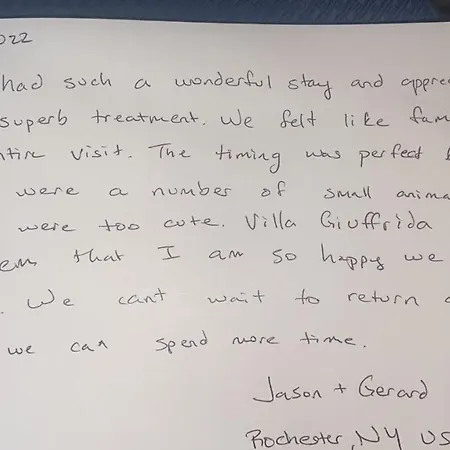 022
had such a wonderful stay and appre
superb treatment. We felt like fam
visit. The timing was perfect
were a number of small anima
were too cute. Villa Giuffrida
that I am so happy we
We cant wait to return
we can spend more time.
Jason + Gerard
Rochester, NY US